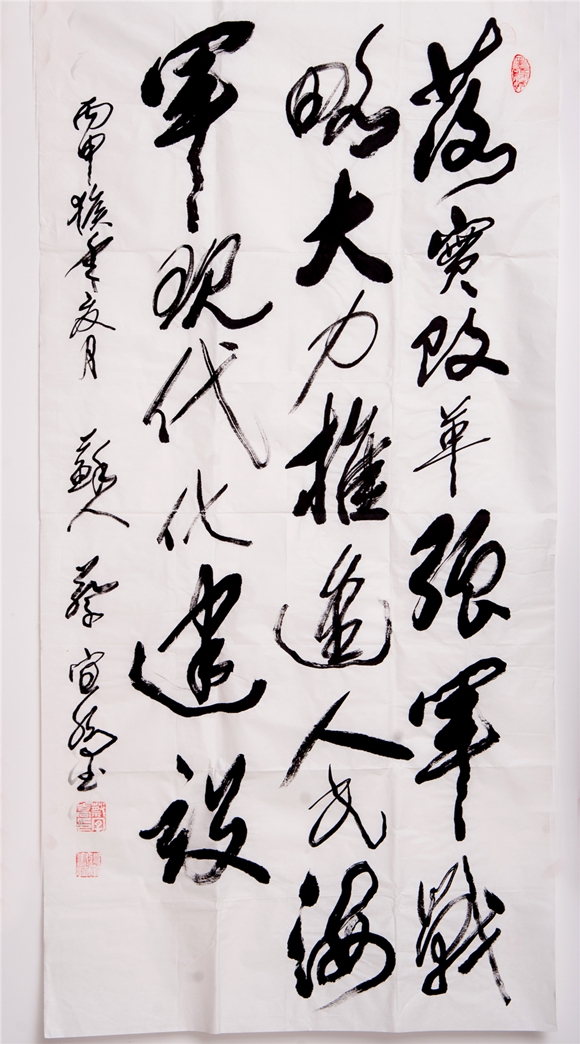 落實改革强军戰
略大力推進人民海
军现代化建设
丙申猴年夏月 蘇人 蔡宜 书